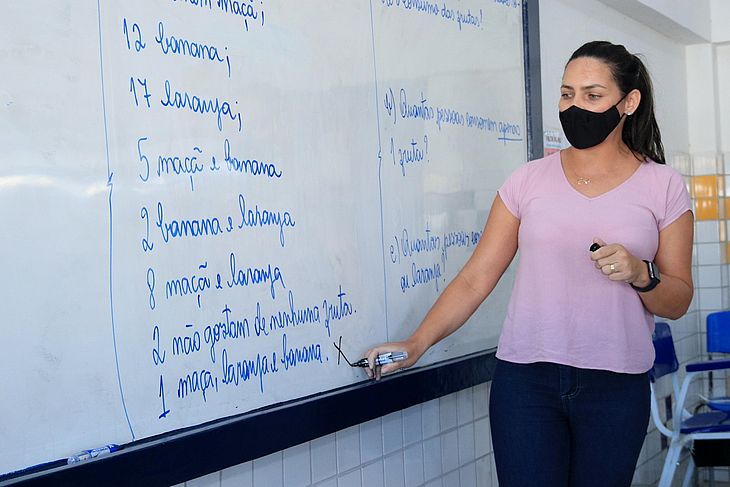 maçã;
12 banana;
17 laranja;
5 maçã e banana
2 banana e laranja
8 maçã e laranja
2 não gostam de nenhuma fruta.
1 maçã, laranja e banana.
consumo das frutas?!
b) Quantas pessoas consomem apenas
1 fruta?
c) Quantas
ou laranja?